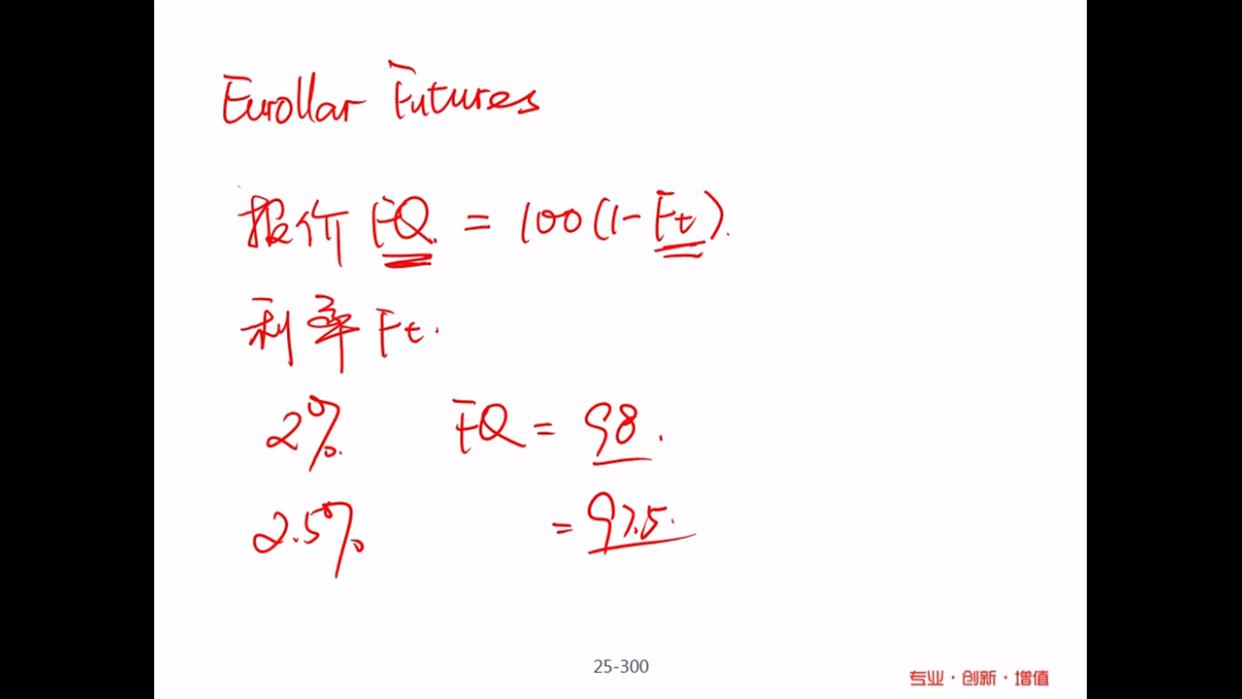 Eurollar Futures
报价 FQ. = 100(1-Ft).
利率 Ft.
2% FQ = 98.
2.5% = 97.5.
25-300
专业·创新·增值